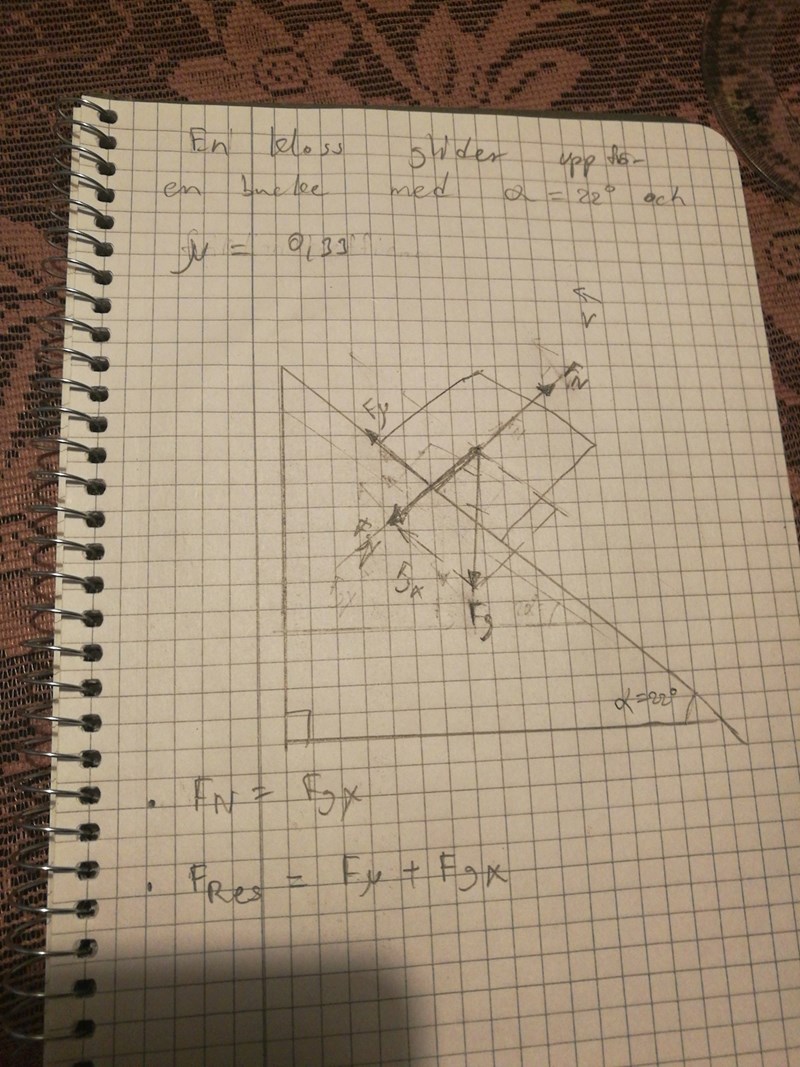 En kloss glider upp för
en backe med α = 22° och
μ = 0,33
v
Fμ
FN
Fg
α=22°
. FN = Fgx
. FRes = Fμ + Fgx